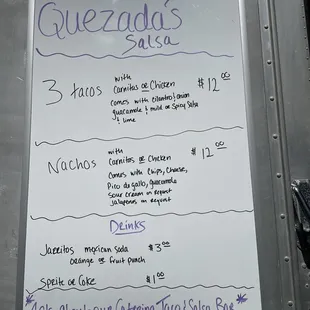 Quezada's
Salsa
3 tacos with Carnitas or Chicken $12.00
comes with cilantro & onion
guacamole & mild or Spicy Salsa
& lime
Nachos with Carnitas or Chicken $12.00
Comes with Chips, Cheese,
Pico de gallo, guacamole
Sour cream on request
Jalapenos on request
Drinks
Jarritos mexican Soda $3.00
orange or fruit punch
Sprite or Coke $1.00
Ask about our Catering Taco & Salsa Bar